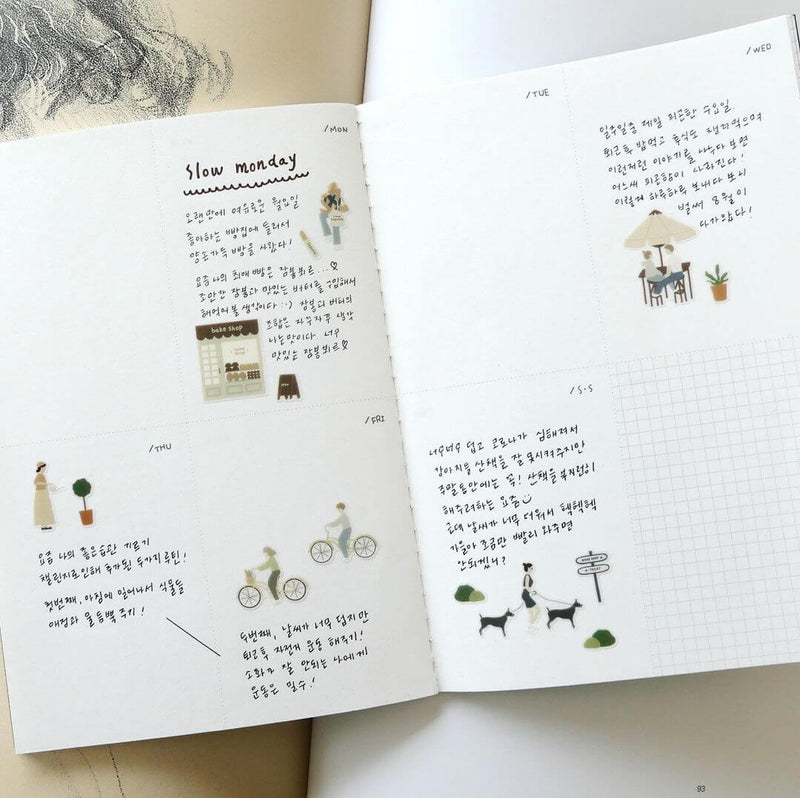 /MON
Slow monday
오랜만에 여유로운 월요일
좋아하는 빵집에 들러서
양손가득 빵을 사왔다!
요즘 나의 최애 빵은 잠봉뵈르...♡
조만간 잠봉과 맛있는 버터를 구입해서
해먹어 볼 생각이다 :-) 잠봉과 버터의
조합은 자꾸자꾸 생각
나는맛이다. 너무
맛있는 잠봉뵈르♡
bake shop
bake
shop
OPEN
/TUE
/WED
일주일중 제일 피곤한 수요일
퇴근후 밥먹고 후식도 챙겨먹으며
이런저런 이야기를 나누다 보면
어느새 피곤함이 사라진다!
이렇게 하루하루 보내다 보니
벌써 8월이
다가왔다!
/THU
요즘 나의 좋은습관 기르기
챌린지로인해 추가된 두가지 루틴,
첫번째, 아침에 일어나서 식물들
애정과 물 듬뿍 주기!
/FRI
두번째, 날씨가 너무 덥지만
퇴근후 자전거 운동 해주기!
소화가 잘 안되는 나에게
운동은 필수!
/S·S
너무너무 덥고 코로나가 심해져서
강아지들 산책을 잘 못시켜주지만
주말동안에는 꼭! 산책을 부지런히
해주려하는 요즘
근데 날씨가 너무 더워서 헥헥헥
가을아 조금만 빨리 와주면
안되겠니?
BOOK SHOP
TOILET
93